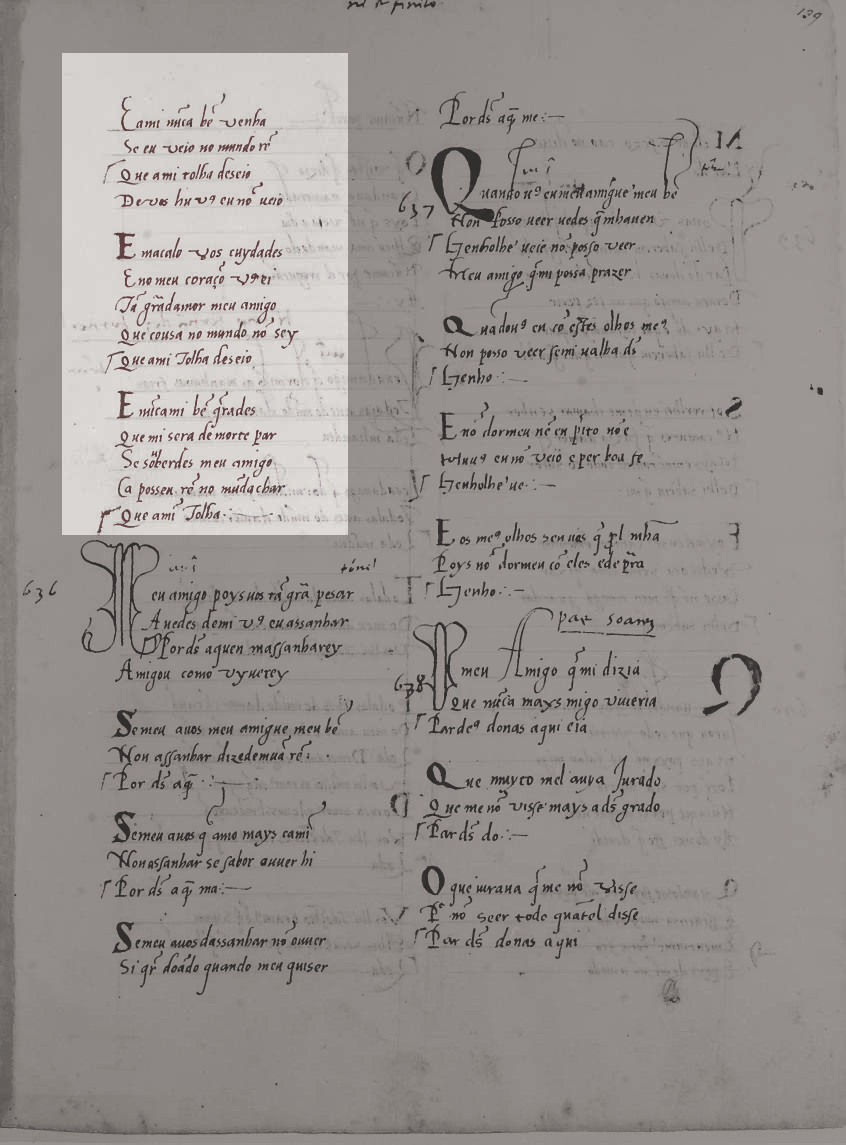 139
E ami nũca bẽ venha
Se eu veio no mundo rẽ
Que ami tolha deseio
De vos hu vꝯ eu nõ veio
E macalo vos cuydades
E no meu coraçõ
Tã grãdamor meu amigo
Que cousa no mundo nõ sey
Que ami Tolha deseio
E nũcami bẽ grãdes
Que mi sera de morte par
Se soberdes meu amigo
Ca posseu rẽ no mũdachar
Que ami Tolha
636
Meu amigo poys uos tã grã pesar
Auedes demi vꝯ eu assanhar
Por dʒ aquen massanharey
Amigou como vyuerey
Se meu auos meu amigue meu bẽ
Non assanhar
Por dʒ aq̃
Se meu auos q̃ amo mays cami
Non assanhar se sabor ouuer hi
Por dʒ a q̃ ma
Se meu auos dassanhar nõ ouuer
Si q̃r doãdo quando meu quiser
Por dʒ aq̃ me
637
Quando
Non posso ueer uedes q̃ mhauen
Tenholhe ueie nõ posso veer
Meu amigo q̃ mi possa prazer
en cõ estes olhos meꝯ
Non posso veer semi ualha dʒ
Tenho
E nõ dormeu nẽ en p̃ito nõ e
eu nõ veio e per boa fe
Tenholhe ue
E os meꝯ olhos sen uos q̃ prol mhã
Poys nõ dormeu cõ eles
Tenho
pae soarez
638
meu Amigo q̃ mi dizia
Que nũca mays migo viueria
Par deꝯ donas aqui eia
Que muyto mel auya Jurado
Que me nõ visse mays a dʒ grado
Par dʒ do
O que iuraua q̃ me nõ visse
nõ seer todo quãtel disse
Par dʒ donas aqui